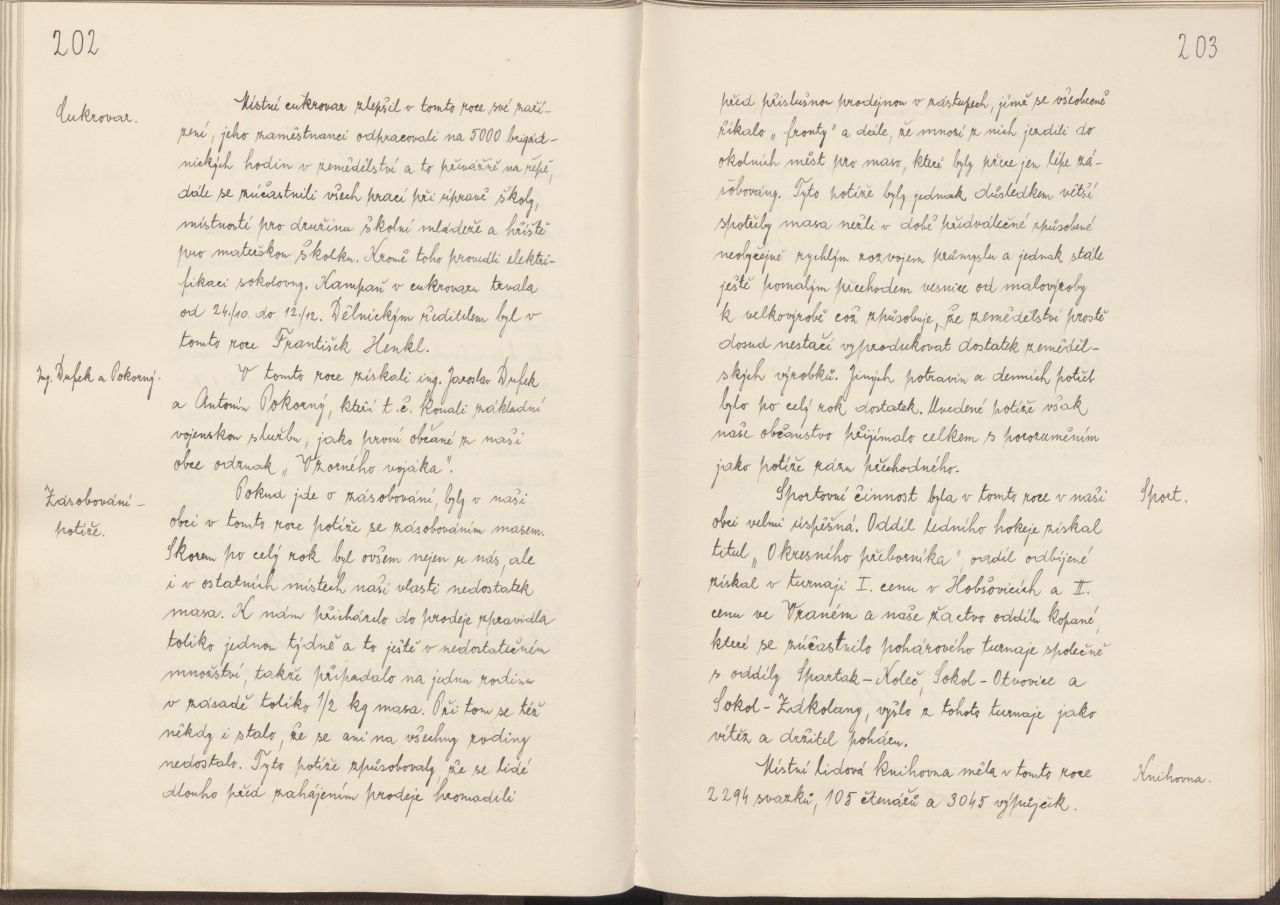 202
Cukrovar.
Místní cukrovar zlepšil v tomto roce své zaří-
zení, jeho zaměstnanci odpracovali na 5000 brigád-
nických hodin v zemědělství a to převážně na řepě,
dále se zúčastnili všech prací při úpravě školy,
místností pro družinu školní mládeže a hřiště
pro mateřskou školku. Kromě toho provedli elektri-
fikaci sokolovny. Kampaň v cukrovaru trvala
od 24./10. do 12./12. Dělnickým ředitelem byl v
tomto roce František Henkl.
Ing. Dufek a Pokorný.
V tomto roce získali ing. Jaroslav Dufek
a Antonín Pokorný, kteří t.č. konali základní
vojenskou službu, jako první občané z naší
obce odznak „Vzorného vojáka".
Zásobování-
potíže.
Pokud jde o zásobování, byly v naší
obci v tomto roce potíže se zásobováním masem.
Skorem po celý rok byl ovšem nejen u nás, ale
i v ostatních místech naší vlasti nedostatek
masa. K nám přicházelo do prodeje zpravidla
toliko jednou týdně a to ještě v nedostatečném
množství, takže připadalo na jednu rodinu
v zásadě toliko 1/2 kg masa. Při tom se též
někdy i stalo, že se ani na všechny rodiny
nedostalo. Tyto potíže způsobovaly, že se lidé
dlouho před zahájením prodeje hromadili
203
před příslušnou prodejnou v zástupech, jimž se všeobecně
říkalo „fronty" a dále, že mnozí z nich jezdili do
okolních měst pro maso, které byly přece jen lépe zá-
sobovány. Tyto potíže byly jednak důsledkem větší
spotřeby masa nežli v době předválečné způsobené
neobyčejně rychlým rozvojem průmyslu a jednak stále
ještě pomalým přechodem vesnice od malovýroby
k velkovýrobě což způsobuje, že zemědělství prostě
dosud nestačí vyprodukovat dostatek zeměděl-
ských výrobků. Jiných potravin a denních potřeb
bylo po celý rok dostatek. Uvedené potíže však
naše občanstvo přijímalo celkem s porozuměním
jako potíže rázu přechodného.
Sport.
Sportovní činnost byla v tomto roce v naší
obci velmi úspěšná. Oddíl ledního hokeje získal
titul „Okresního přeborníka", oddíl odbíjené
získal v turnaji I. cenu v Hobšovicích a II.
cenu ve Vraném a naše žactvo oddílu kopané,
které se zúčastnilo pohárového turnaje společně
s oddíly Spartak-Koleč, Sokol-Otvovice a
Sokol-Zákolany, vyšlo z tohoto turnaje jako
vítěz a držitel poháru.
Knihovna.
Místní lidová knihovna měla v tomto roce
2294 svazků, 105 čtenářů a 3045 výpůjček.